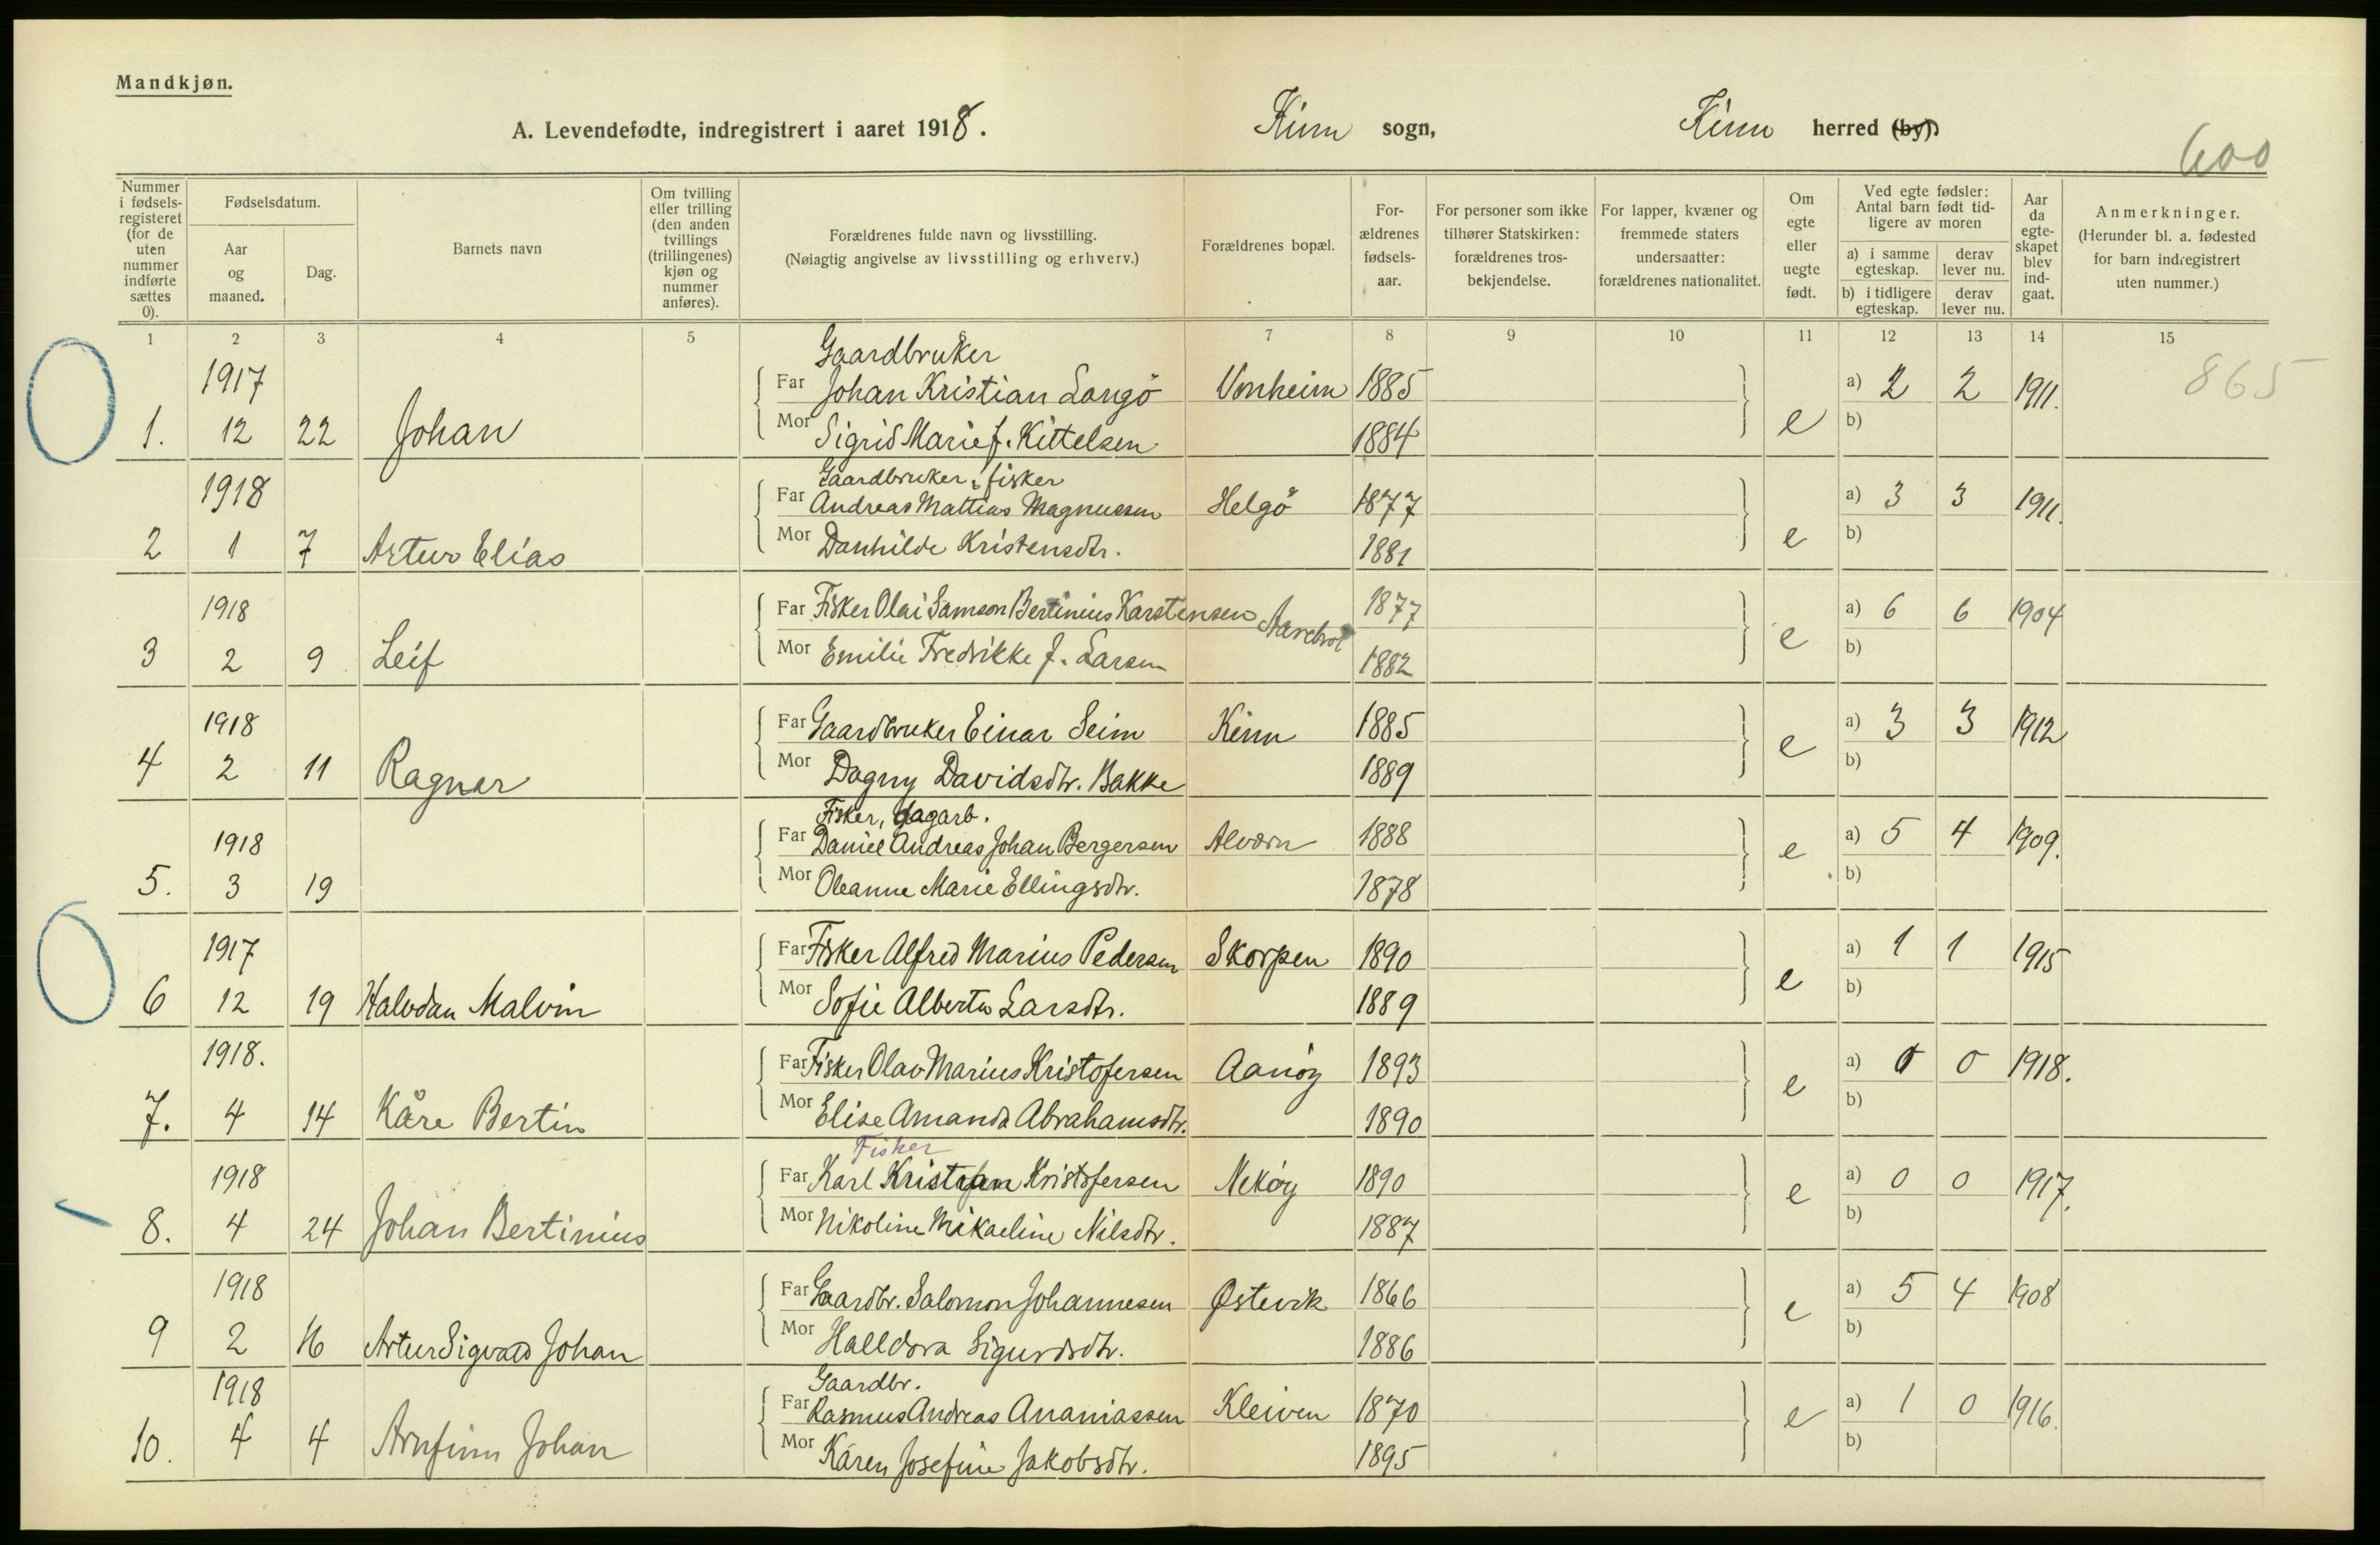 Mandkjøn.
A. Levendefødte, indregistrert i aaret 1918. Kinn sogn, Kinn herred (by).
600
Nummer i fødsels-registeret (for de uten nummer indførte sættes 0).
Fødselsdatum.
Aar og maaned.
Dag.
Barnets navn
Om tvilling eller trilling (den anden tvillings (trillingenes) kjøn og nummer anføres).
Forældrenes fulde navn og livsstilling.
(Nøiagtig angivelse av livsstilling og erhverv.)
Forældrenes bopæl.
For-ældrenes fødsels-aar.
For personer som ikke tilhører Statskirken: forældrenes tros-bekjendelse.
For lapper, kvæner og fremmede staters undersaatter: forældrenes nationalitet.
Om egte eller uegte født.
Ved egte fødsler: Antal barn født tid-ligere av moren
a) i samme egteskap. derav lever nu.
b) i tidligere egteskap. derav lever nu.
Aar da egte-skapet blev ind-gaat.
Anmerkninger.
(Herunder bl. a. fødested for barn indregistrert uten nummer.)
1 2 3 4 5 6 7 8 9 10 11 12 13 14 15
Gaardbruker
1917 Far Johan Kristian Langö Vonheim 1885 a) 2 2 1911. 865
1. 12 22 Johan Mor Sigrid Marie f. Kittelsen 1884 e b)
Gaardbruker, fisker
1918 Far Andreas Mattias Magnussen Helgö 1877 a) 3 3 1911.
2 1 7 Artur Elias Mor Danhilde Kristensdtr. 1881 e b)
1918 Far Fisker Olai Samson Bertinius Karstensen Aarebrot 1877 a) 6 6 1904
3 2 9 Leif Mor Emilie Fredrikke f. Larsen 1882 e b)
1918 Far Gaardbruker Einar Seim Kinn 1885 a) 3 3 1912
4 2 11 Ragnar Mor Dagny Davidsdtr. Bakke 1889 e b)
Fisker, dagarb.
1918 Far Daniel Andreas Johan Bergersen Alværn 1888 a) 5 4 1909.
5. 3 19 Mor Oleanne Marie Ellingsdtr. 1878 e b)
1917 Far Fisker Alfred Marius Pedersen Skorpen 1890 a) 1 1 1915
6 12 19 Halvdan Malvin Mor Sofie Alberta Larsdtr. 1889 e b)
1918. Far Fisker Olav Marius Kristofersen Aanøy 1893 a) 0 0 1918.
7. 4 14 Kåre Bertin Mor Elise Amanda Abrahamsdtr. 1890 e b)
Fisker
1918 Far Karl Kristian Kristofersen Nekøy 1890 a) 0 0 1917.
8. 4 24 Johan Bertinius Mor Nikoline Mikaeline Nilsdtr. 1887 e b)
1918 Far Gaardbr. Salomon Johannesen Østevik 1866 a) 5 4 1908
9 2 16 Artur Sigvald Johan Mor Halldora Sigurdsdtr. 1886 e b)
Gaardbr.
1918 Far Rasmus Andreas Ananiassen Kleiven 1870 a) 1 0 1916.
10. 4 4 Arnfinn Johan Mor Karen Josefine Jakobsdtr. 1895 e b)